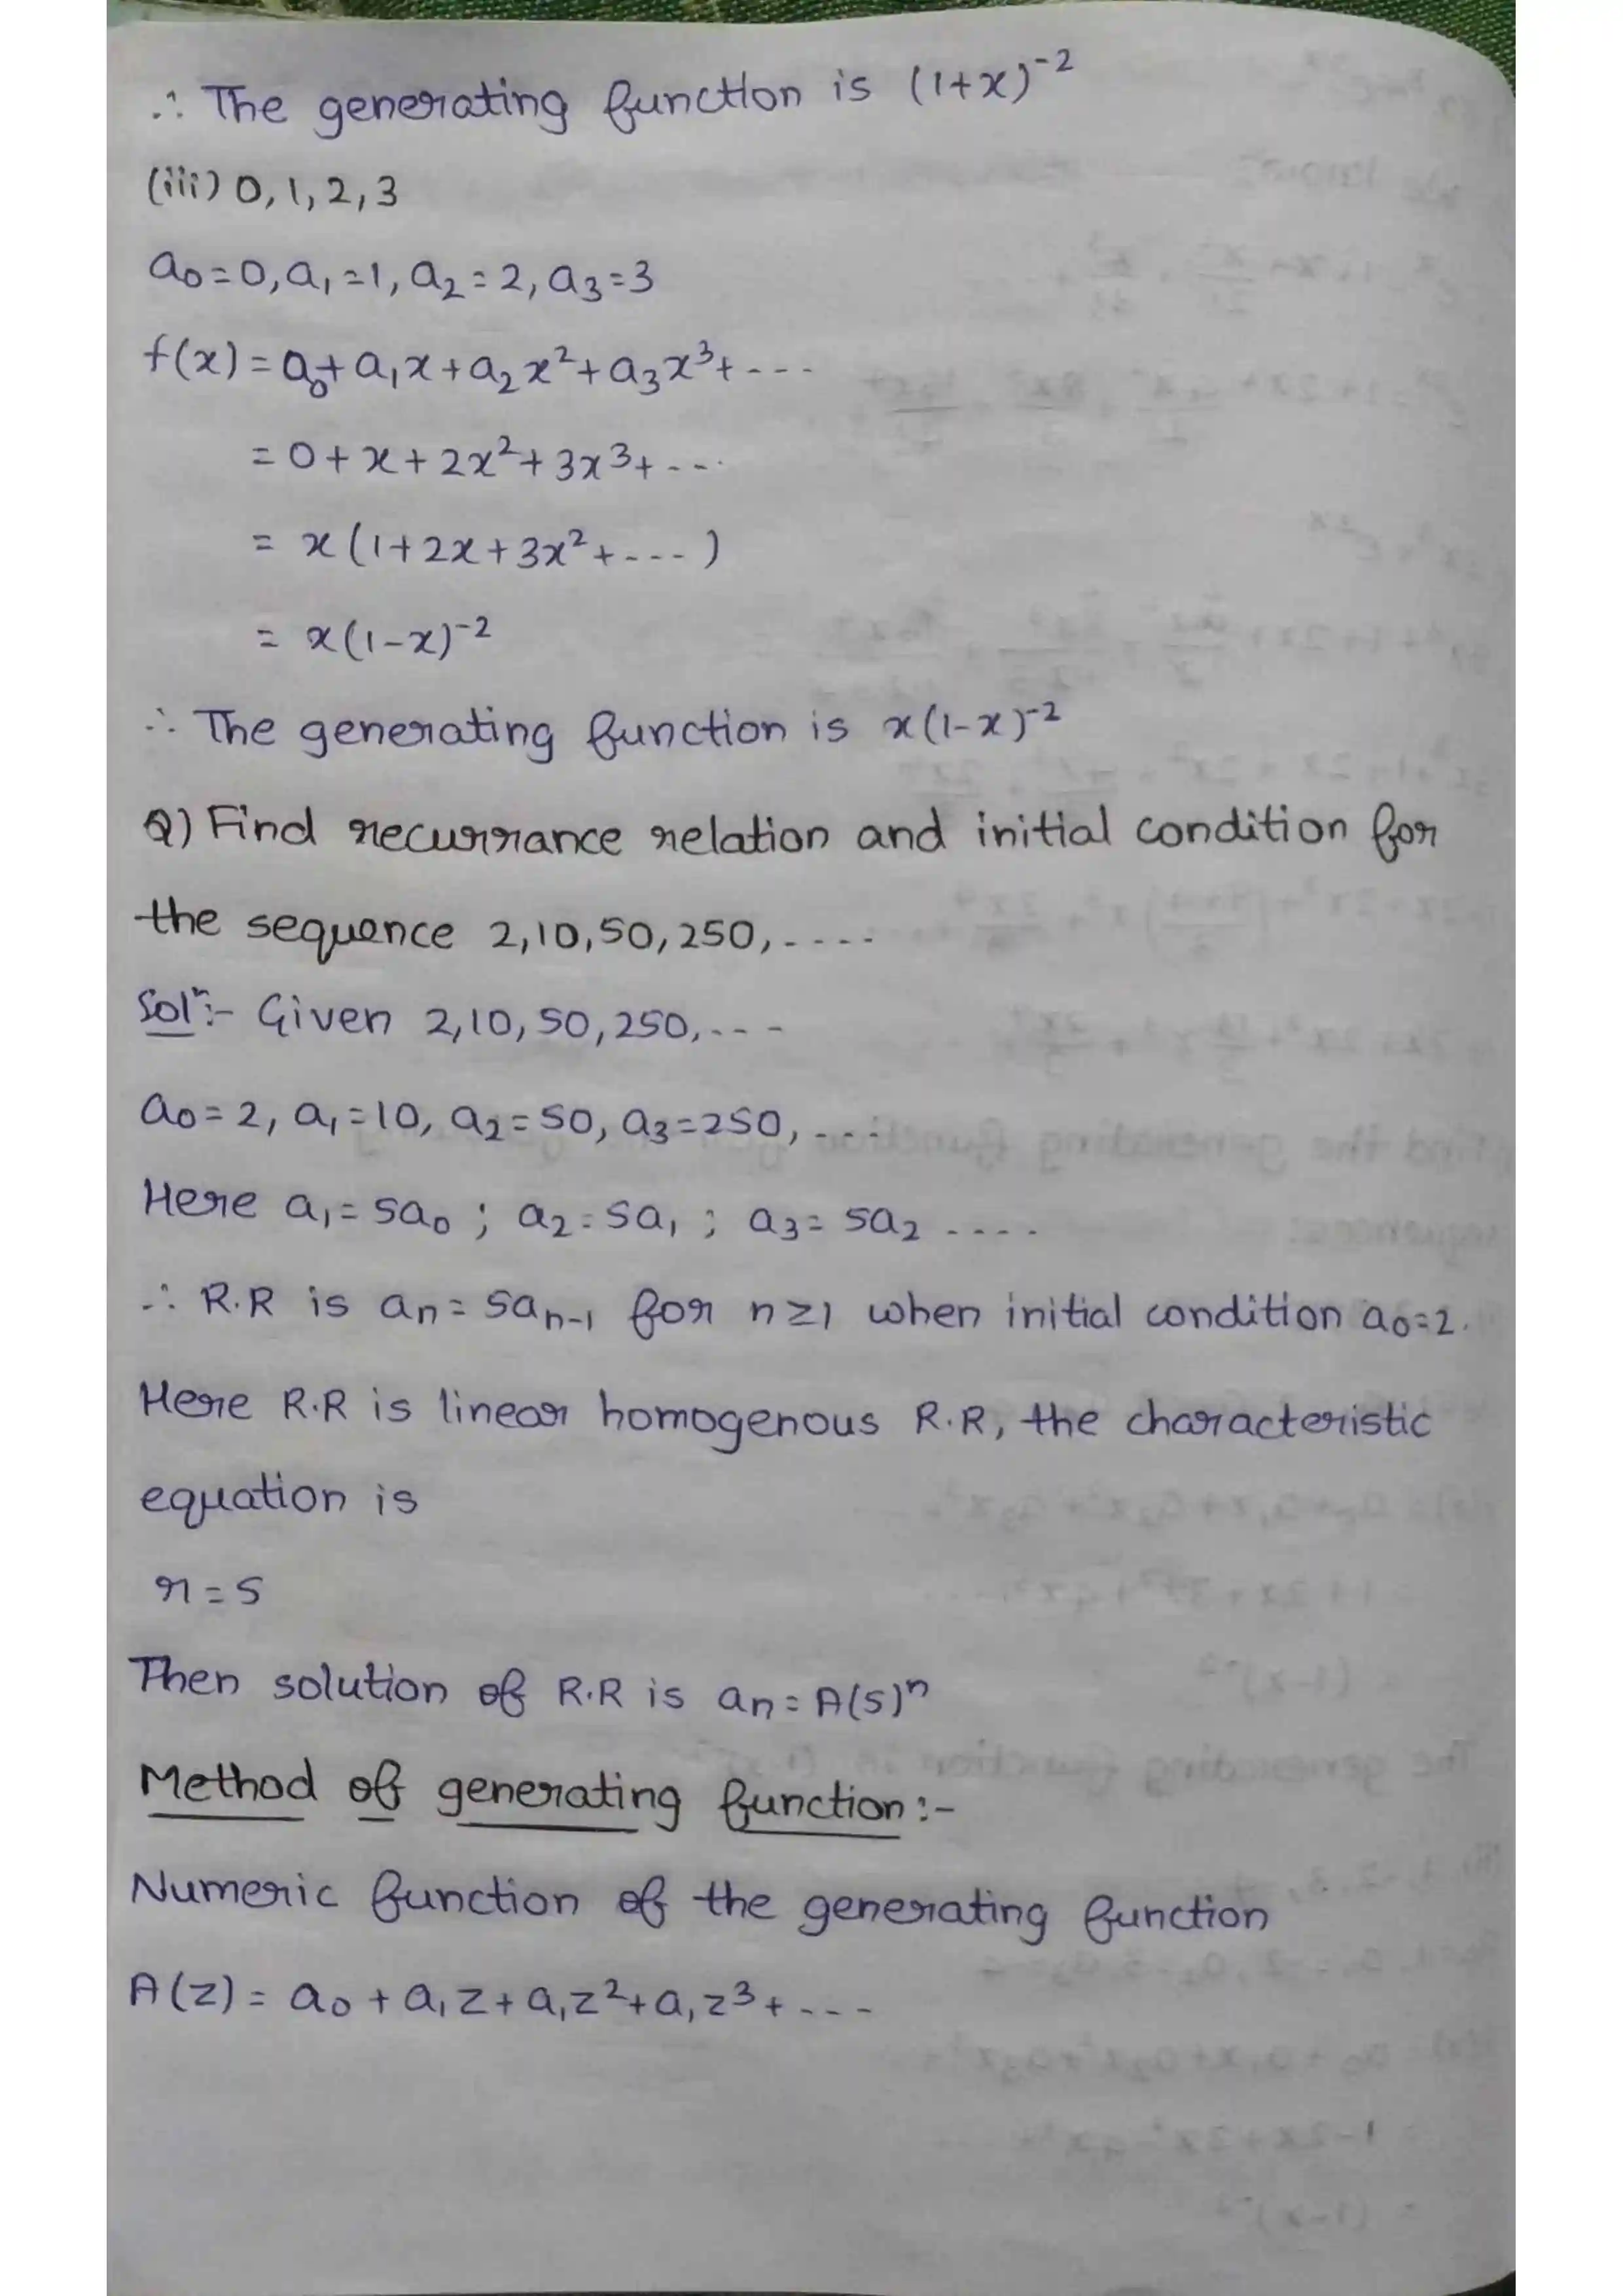 ∴ The generating function is (1+x)⁻²
(iii) 0, 1, 2, 3
a₀=0, a₁=1, a₂=2, a₃=3
f(x) = a₀+a₁x+a₂x²+a₃x³+---
= 0+x+2x²+3x³+---
= x(1+2x+3x²+---)
= x(1-x)⁻²
∴ The generating function is x(1-x)⁻²
Q) Find recurrance relation and initial condition for
the sequence 2,10,50,250,----
Solⁿ:- Given 2,10,50,250,---
a₀=2, a₁=10, a₂=50, a₃=250,----
Here a₁=5a₀ ; a₂=5a₁ ; a₃=5a₂ ----
∴ R.R is aₙ=5aₙ₋₁ for n≥1 when initial condition a₀=2.
Here R.R is linear homogenous R.R, the characteristic
equation is
r=5
Then solution of R.R is aₙ=A(5)ⁿ
Method of generating function:-
Numeric function of the generating function
A(z) = a₀+a₁z+a₁z²+a₁z³+---